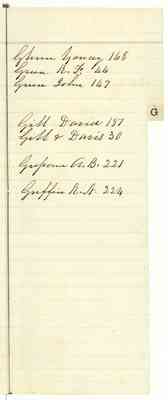 Green Yancey 148
Green R. F. 44
Green John 147
Gill David 187
Gill & Davis 30
A. B. 221
Griffin R. A. 224
G